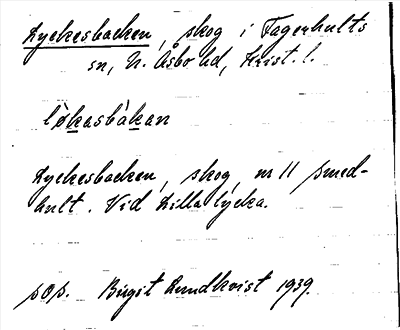 Lyckesbacken, skog i Fagerhults
sn, N. Åsbo hd, Krist. l.
lø̀kasbàkan
Lyckesbacken, skog, nr 11 Smed-
hult. Vid Lilla lycka.
sOs. Birgit Lundkvist 1939.